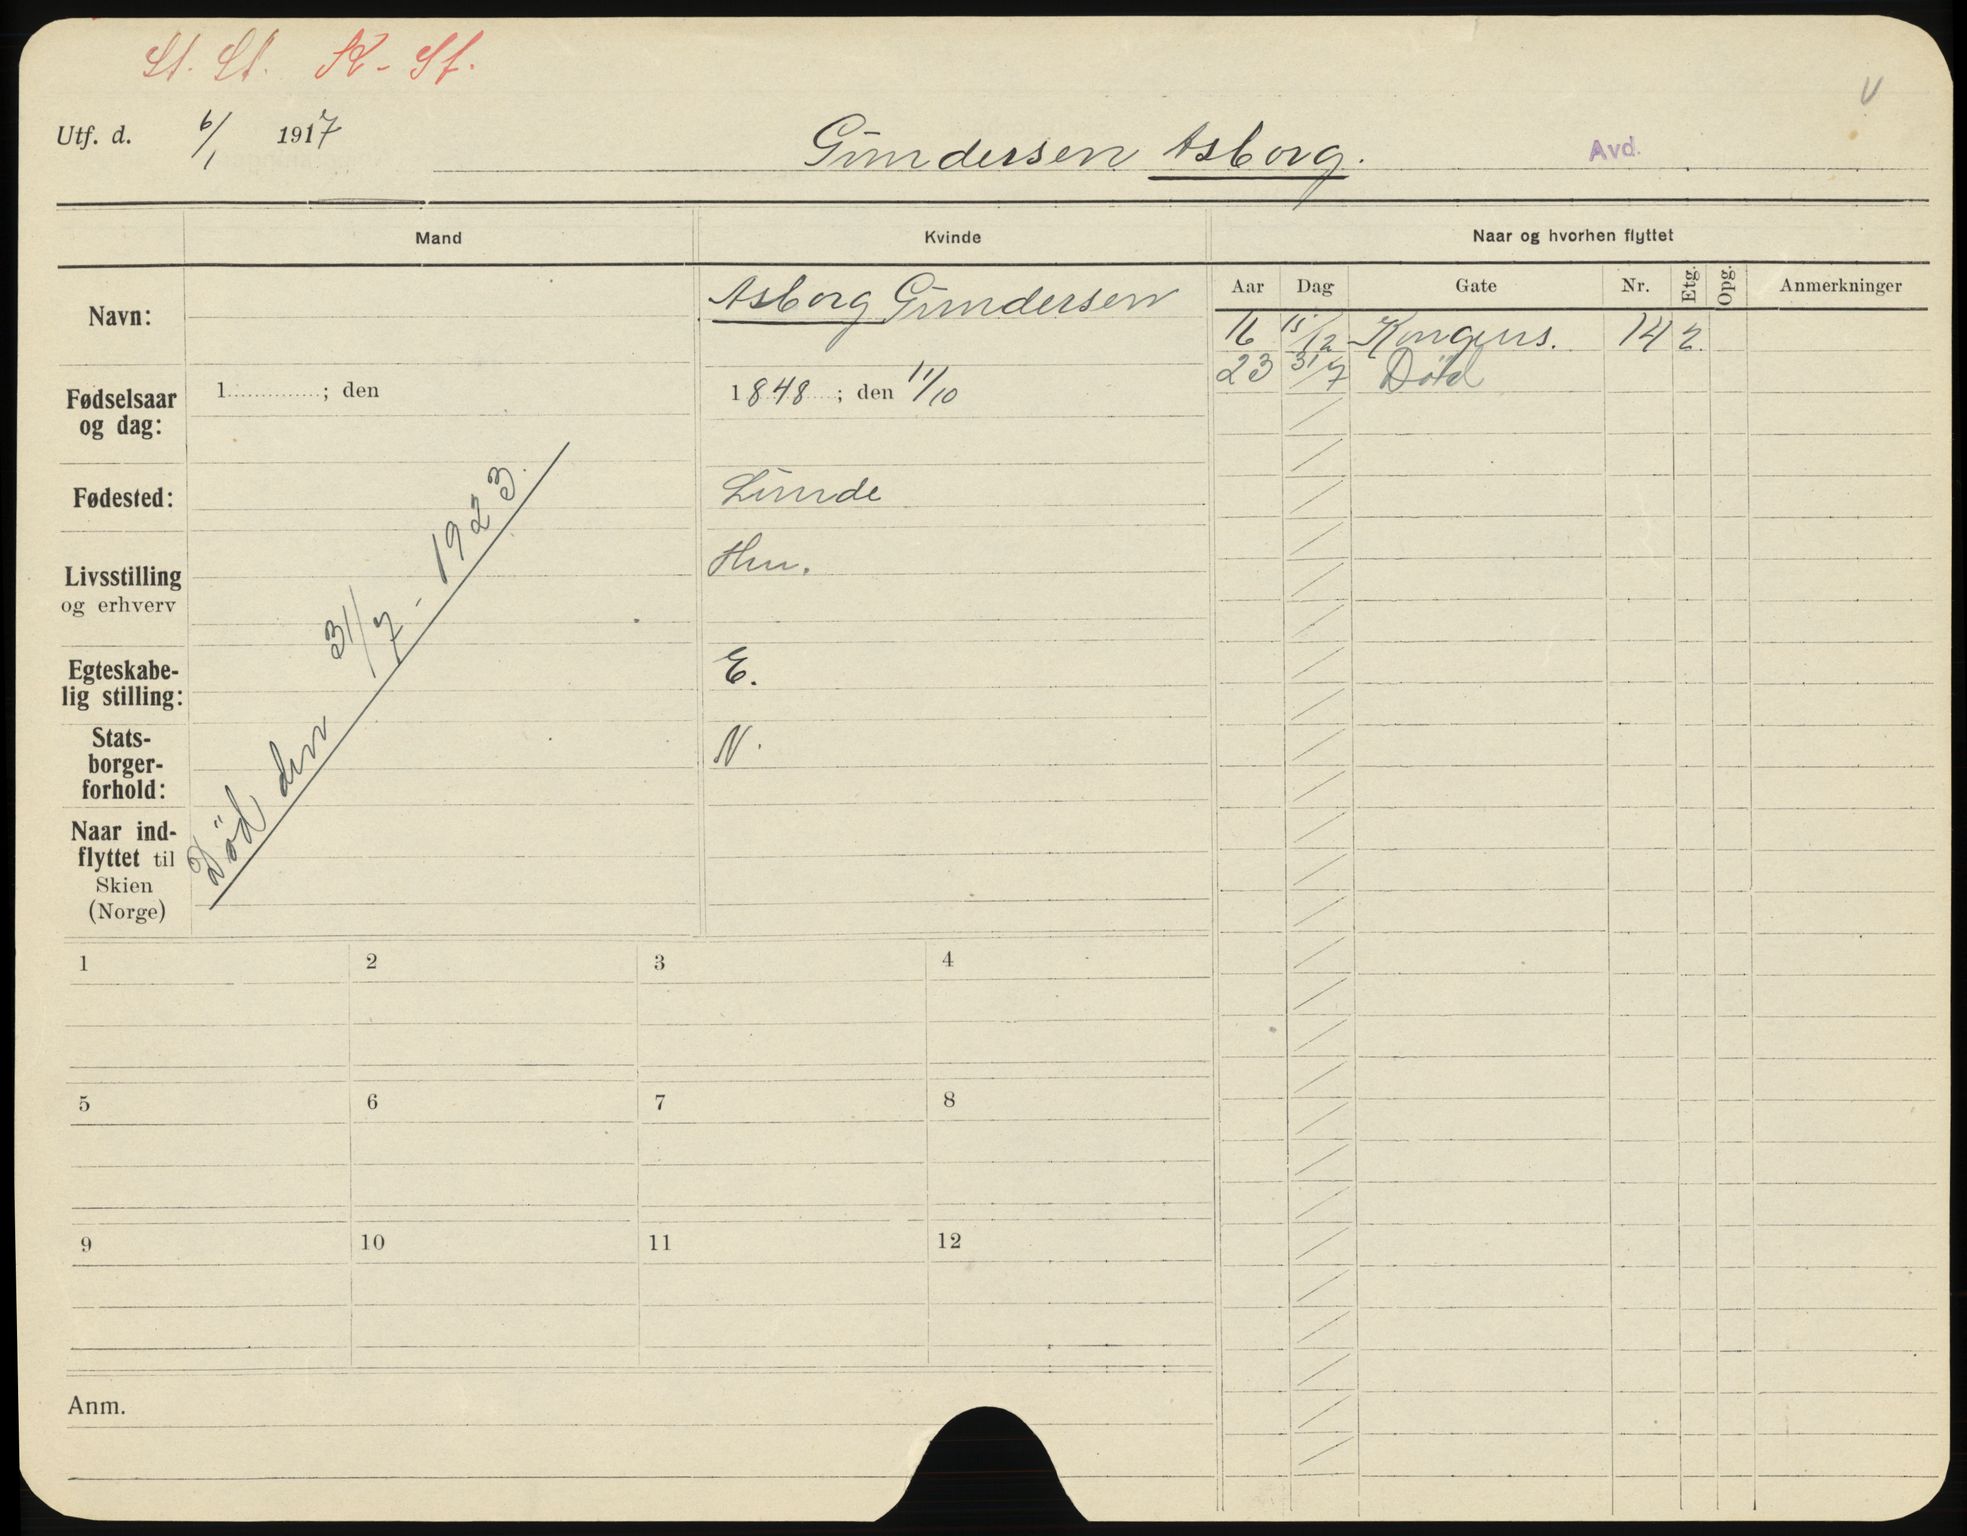 St. St. K - Sf.
V
Utf. d. 6/1 1917
Gundersen Asborg.
Avd.
Mand
Kvinde
Naar og hvorhen flyttet
Aar Dag Gate Nr. Etg. Opg. Anmerkninger
Navn:
Asborg Gundersen
16 15/12 Kongens. 14 2.
23 31/7 Död
Fødselsaar
og dag:
1 ; den
1848 ; den 11/10
Fødested:
Lunde
Livsstilling
og erhverv
Egteskabe-
lig stilling:
E.
Stats-
borger-
forhold:
N.
Naar ind-
flyttet til
Skien
(Norge)
Död den 31/7 - 1923.
1 2 3 4
5 6 7 8
9 10 11 12
Anm.